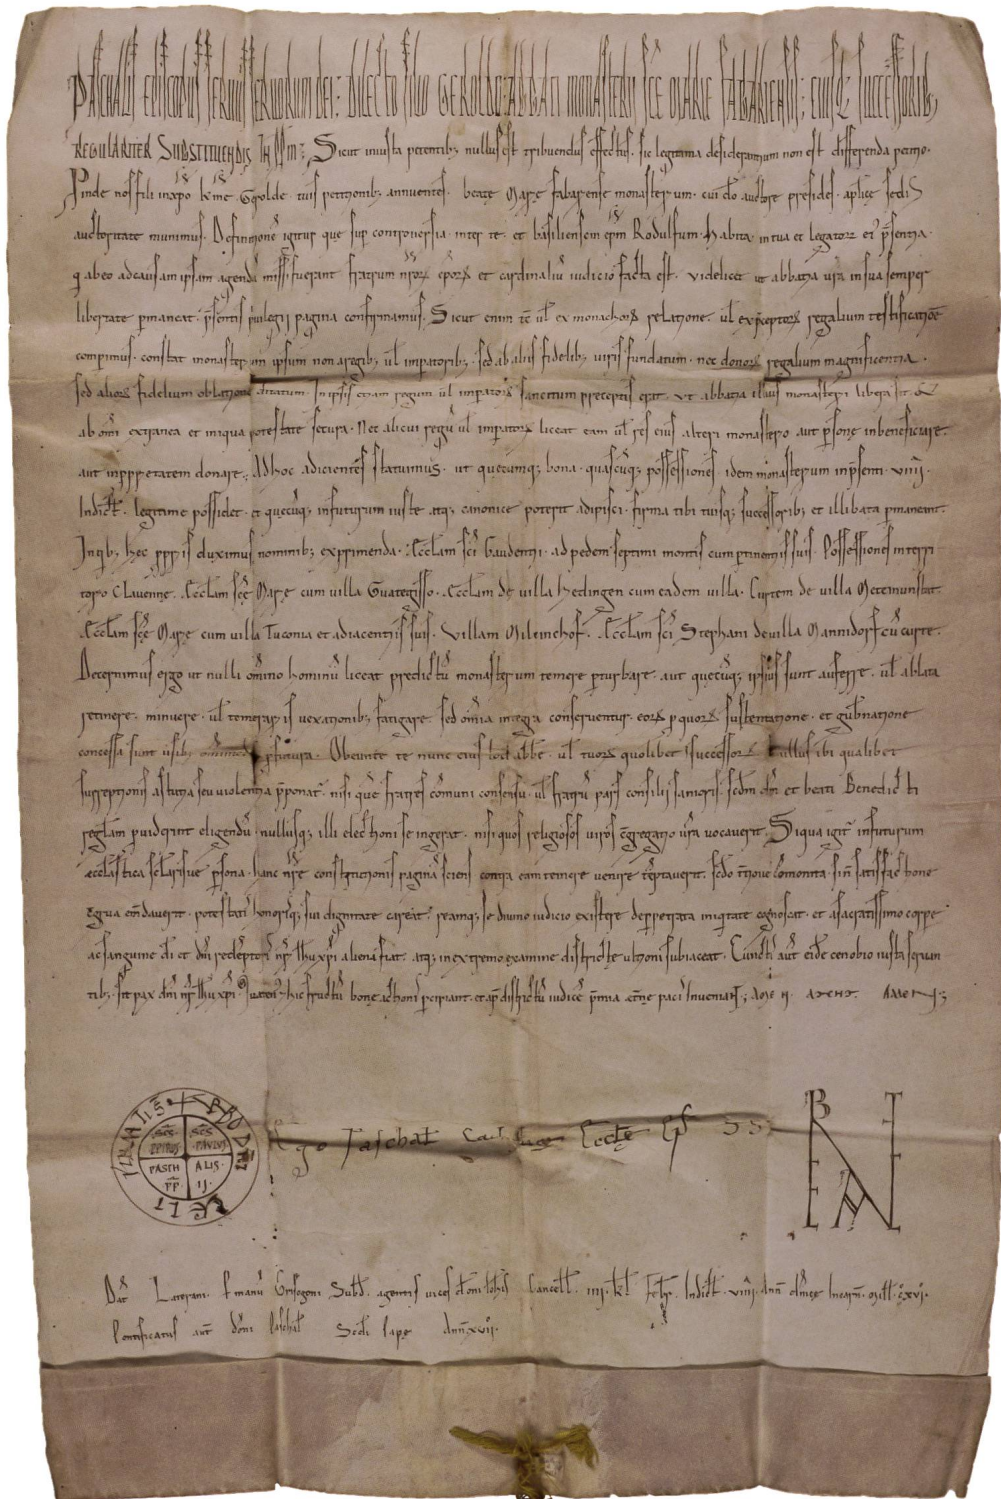 PASCHALIS EPISCOPUS SERVUS SERVORUM DEI; DILECTO FILIO GEROLDO ABBATI MONASTERII SCE MARIE FABARIENSIS; EIUSQ; SUCCESSORIB;
REGULARITER SUBSTITUENDIS IN PPM; Sicut iniusta petentib; nullus est tribuendus effectus. sic legitima desiderantium non est differenda petitio.
Proinde nos fili in xpo kme Gerolde tuis petitionib; annuentes. beate Marie fabarense monasterium. cui do auctore presides. aplice sedis
auctoritate munimus. Definitione igitur que sup controversia inter te. et basiliensem epm Rodulfum. habita in tua et legator ei psentia.
q ab eo ad causam ipsam agenda missi fuerant fratrum nror epor et cardinaliu iudicio facta est. videlicet ut abbatia vra in sua semper
libertate pmaneat. psentis privilegii pagina confirmamus. Sicut enim vel ex monachor relatione vl ex preceptor regalium testificatioe
comperimus. constat monasterium ipsum non a regib; vl imperatorib; sed ab aliis fidelib; viris fundatum. nec donor regalium magnificentia.
sed alior fidelium oblatione ditatum. In ipsis etiam regum vl imperator sancitum preceptis erit. ut abbatia illius monasterii libera sit &
ab omi extranea et iniqua potestate secura. Nec alicui regu vl imperator liceat eam vl res eius alteri monasterio aut psone in beneficiare.
aut in pprietatem donare. Ad hoc adicientes statuimus. ut quecumq; bona. quascuq; possessiones idem monasterium in psenti. viiii.
Indict. legitime possidet. et quecuq; in futurum iuste atq; canonice poterit adipisci. firma tibi tuisq; successorib; et illibata pmaneant.
In qib; hec ppriis duximus nominib; exprimenda. Accliam sci Gaudentii. ad pedem septimi montis cum ptinentiis suis. Possessiones in terri
torio Clavenne. Eccliam sce Marie cum villa Guategisso. Eccliam de villa hetlingen cum eadem villa. Curtem de villa Metemunstat.
Eccliam sce Marie cum villa Tuconia et adiacentiis suis. Villam Mileinchof. Eccliam sci Stephani de villa Mannidorf cu curte.
Decernimus ergo ut nulli omino hominu liceat predictu monasterium temere pturbare. aut quecuq; ipsius sunt auferre. vl ablata
retinere. minuere. vl temerariis vexationib; fatigare sed omia integra conserventur. eor p quor sustentatione. et gubnatione
concessa sunt usib; pfutura. Obeunte te nunc eius loci abbe. vl tuor quolibet successor nullus ibi qualibet
surreptionis astutia seu violentia pponat. nisi que fratres comuni consensu. vl fratru pars consilii sanioris. scdm dm et beati Benedicti
reglam pviderint eligendu. nullusq; illi electioni se ingerat. nisi quos religiosos viros cgregatio vra vocaverit. Siqua igit in futurum
ecclastica sclarisve psona. hanc nre constitutionis pagina sciens contra eam temere venire teptaverit. scdo tiove comonita. sin satisfactione
cgrua emdaverit. potestati honorisq; sui dignitate careat. reamq; se divino iudicio existere de perpetrata iniqitate cognoscat. et a sacratissimo corpe
ac sanguine di et dni redeptori nri ihu xpi aliena fiat. atq; in extremo examine districte ultioni subiaceat. Cunctis aut eide cenobio iusta servan
tib; sit pax dni nri ihu xpi. quatenus hic fructu bone actioni percipiant. et ap districtu iudice pmia etne paci inveniant; AMEN. AMEN. AMEN;
BENE VALETE
SCS PETRUS SCS PAULUS
PASCHALIS PP II.
Ego Paschal Catholice Eccle Eps SS
Dat Laterani. p manu Grisogoni Subd. agentis vices domi Iohis Cancell. iiii. kl Febr. Indict. viiii. Ann dnice Incarn. mill. c. xvi.
Pontificatus aut domi Paschal Scdi Pape Ann xvii.